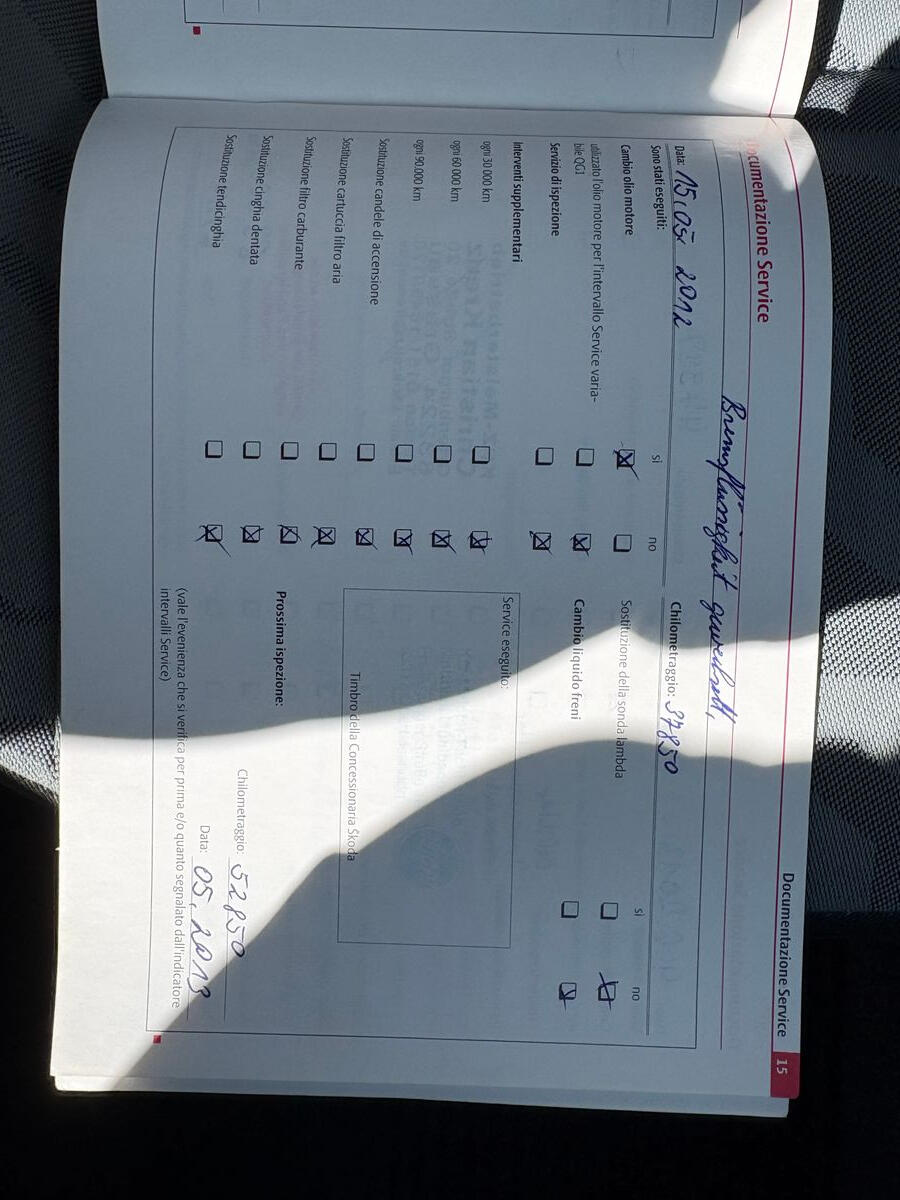 Documentazione Service
Documentazione Service 15
Bremsflüssigkeit gewechselt,
Data: 15.05 2012
Chilometraggio: 37850
Sono stati eseguiti:
sì no
sì no
Cambio olio motore
Sostituzione della sonda lambda
utilizzato l'olio motore per l'intervallo Service varia-
bile QG1
Cambio liquido freni
Servizio di ispezione
Interventi supplementari
Service eseguito:
ogni 30 000 km
ogni 60 000 km
ogni 90.000 km
Sostituzione candele di accensione
Sostituzione cartuccia filtro aria
Timbro della Concessionaria Škoda
Sostituzione filtro carburante
Prossima ispezione:
Sostituzione cinghia dentata
Chilometraggio: 52850
Sostituzione tendicinghia
Data: 05.2013
(vale l'evenienza che si verifica per prima e/o quanto segnalato dall'indicatore
intervalli Service)